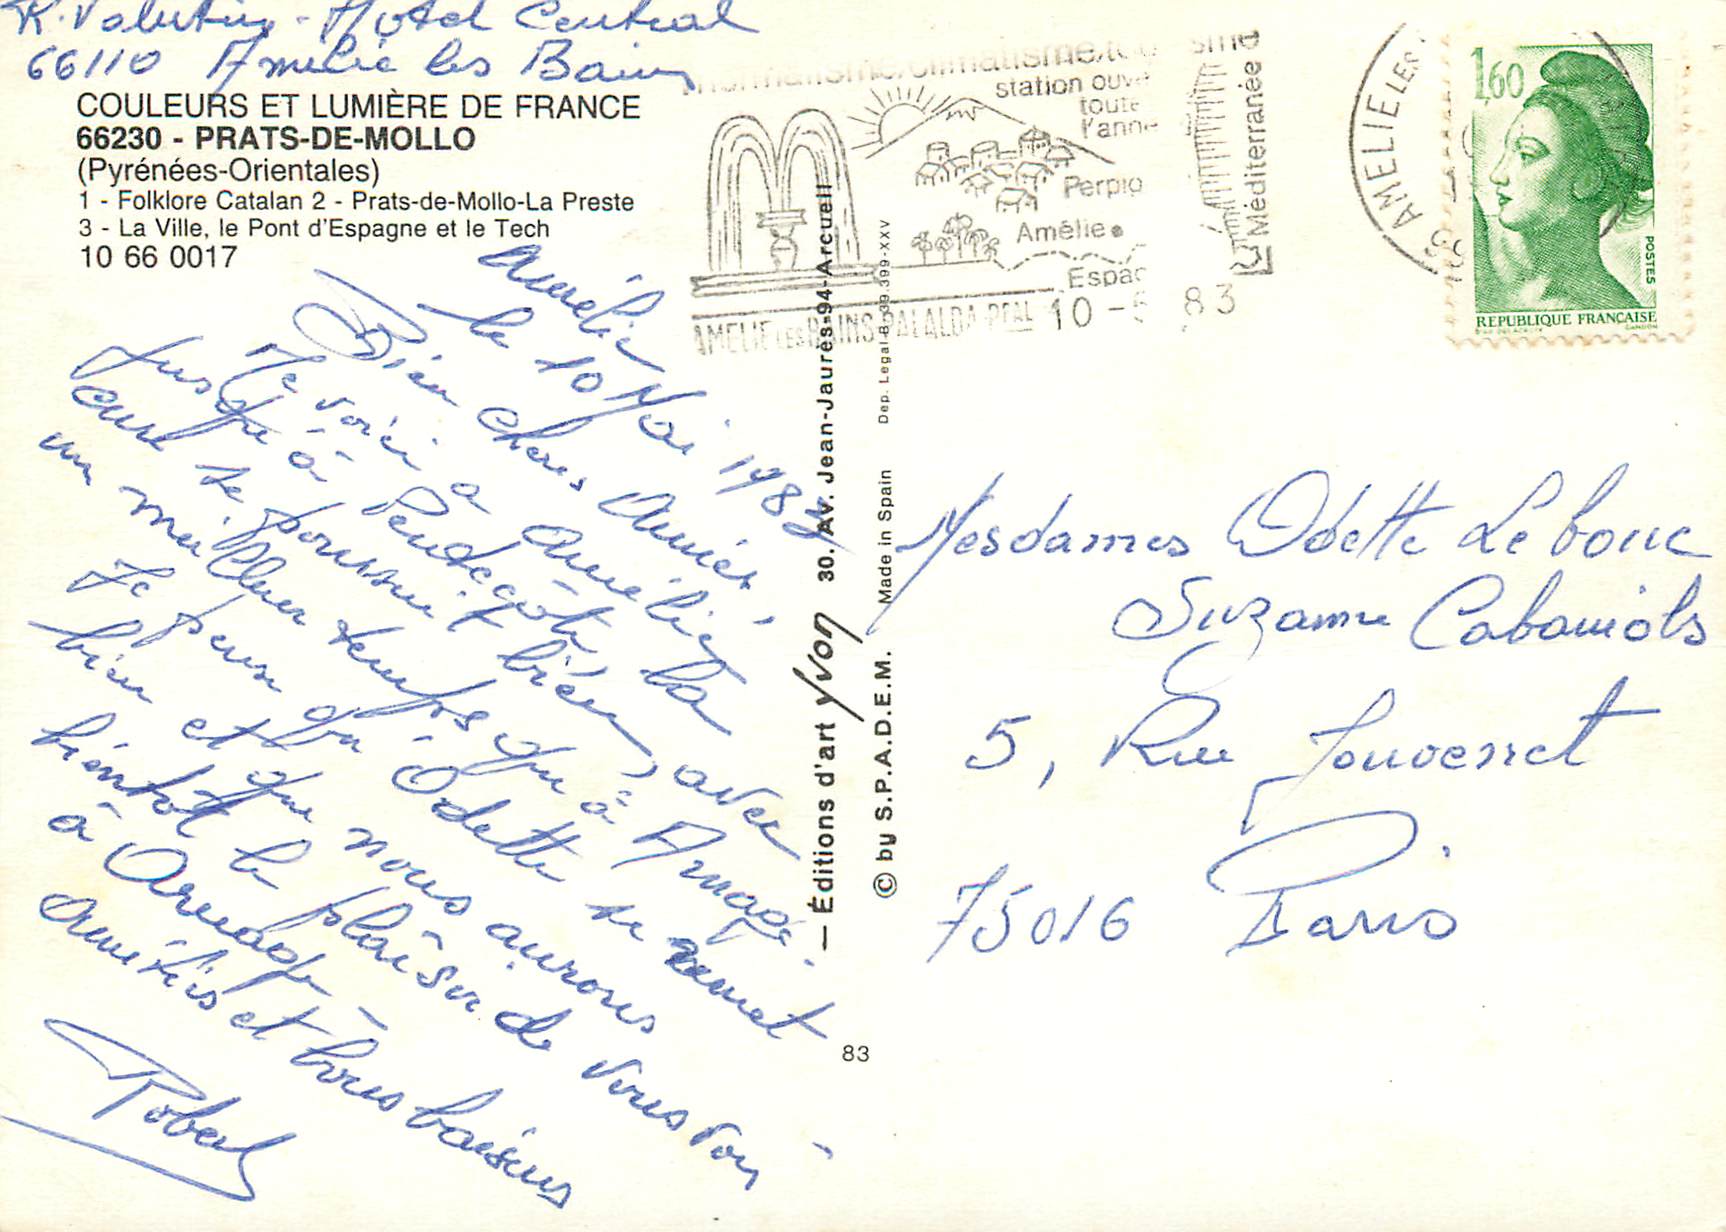 R. Valentin - Hôtel Central
66110 Amélie les Bains
COULEURS ET LUMIÈRE DE FRANCE
66230 - PRATS-DE-MOLLO
(Pyrénées-Orientales)
1 - Folklore Catalan 2 - Prats-de-Mollo-La Preste
3 - La Ville, le Pont d'Espagne et le Tech
10 66 0017
Amélie
le 10 Mai 1983
Bien chères Amies,
Me voici à Amélie
jusqu'à Pentecôte, la
cure se poursuit bien, avec
un meilleur temps qu'à Arnage.
Je pense qu'Odette se remet
bien et que nous aurons
bientôt le plaisir de vous voir
à Arnage -
amitiés et bons baisers
Robert
— Éditions d'art Yvon 30, Av. Jean-Jaurès-94-Arcueil
© by S.P.A.D.E.M. Made in Spain Dep. Legal B. 39.399-XXV
83
thermalisme/climatisme/tourisme
station ouv
toute
l'anné
Perpig
Amélie
Espag
Méditerranée
AMELIE LES BAINS-PALALDA-PPAL 10-5 83
66 AMELIE LES
1,60
POSTES
REPUBLIQUE FRANÇAISE
GANDON
Mesdames Odette Lebouc
Suzanne Cabaniols
5, Rue Jouvenet
75016 Paris